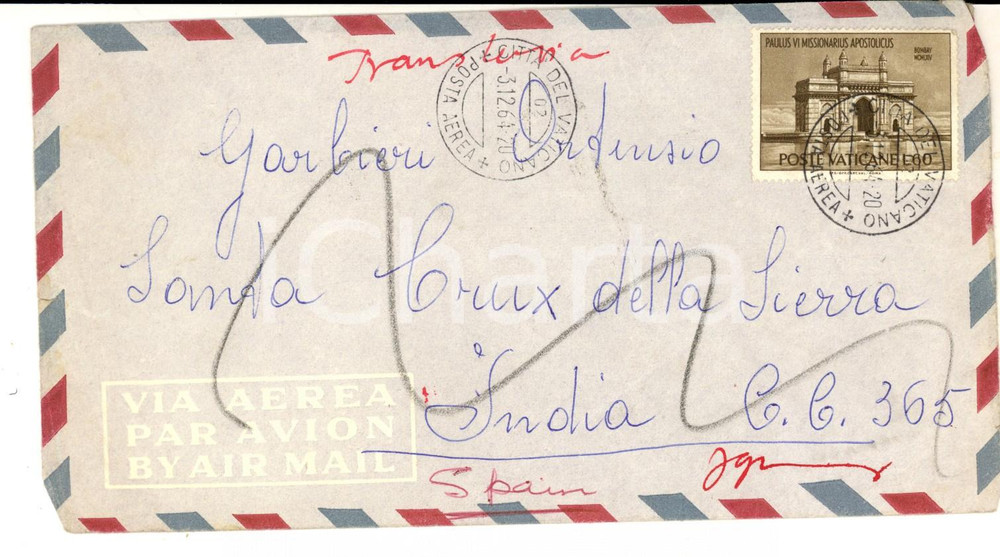 PAULUS VI MISSIONARIUS APOSTOLICUS
BOMBAY
MCMLXIV
POSTE VATICANE L.60
CITTÀ DEL VATICANO
POSTA AEREA
-3.12.64·20
02
DEL VATICANO
POSTA AEREA
Garbieri Ortensio
Santa Crux della Sierra
India C.C. 365
Spain
VIA AEREA
PAR AVION
BY AIR MAIL
iCharta